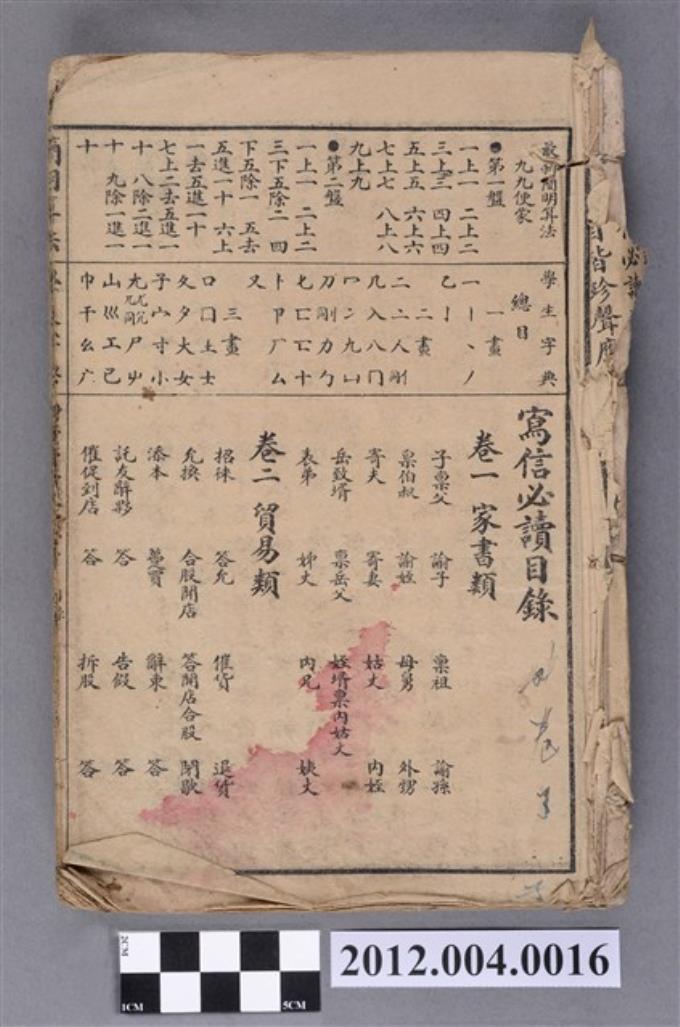 最新簡明算法
九九便家
●第一盤
一上一 二上二
三上三 四上四
五上五 六上六
七上七 八上八
九上九
●第二盤
一上一 二上二
三下五除二 四
下五除一 五去
五進一十 六上
一去五進一十
七上二去五進一
十 八除二進一
十 九除一進一
十
學生字典
總目
一畫
一丨丶丿
乙亅
二畫
二亠人
几入八冂
冖冫九凵
刀力勹
匕匚匸十
卜卩厂厶
又
三畫
口囗土士
夂夕大女
子宀寸小
尢尸屮
山巛工己
巾干幺广
寫信必讀目錄
卷一 家書類
子稟父 諭子 稟祖 諭孫
稟伯叔 諭姪 母舅 外甥
寄夫 寄妻 姑丈 內姪
岳致壻 稟岳父 姪壻稟內姑丈
表弟 姊丈 內兄 姨丈
卷二 貿易類
招徠 答允 催貨 退貨
允換 合股開店 答開店合股 閉歇
添本 辭東 答
託友辭夥 答 告假 答
催促到店 答 拆股 答
2CM
1CM
5CM
2012.004.0016